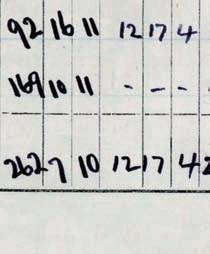 92 16 11 12 17 4
169 10 11 - - -
262 7 10 12 17 4